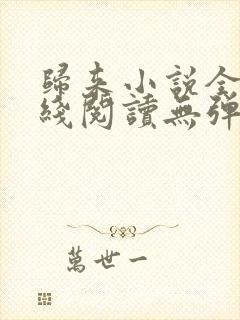 歸来小説全
綫閱讀無彈
萬世一